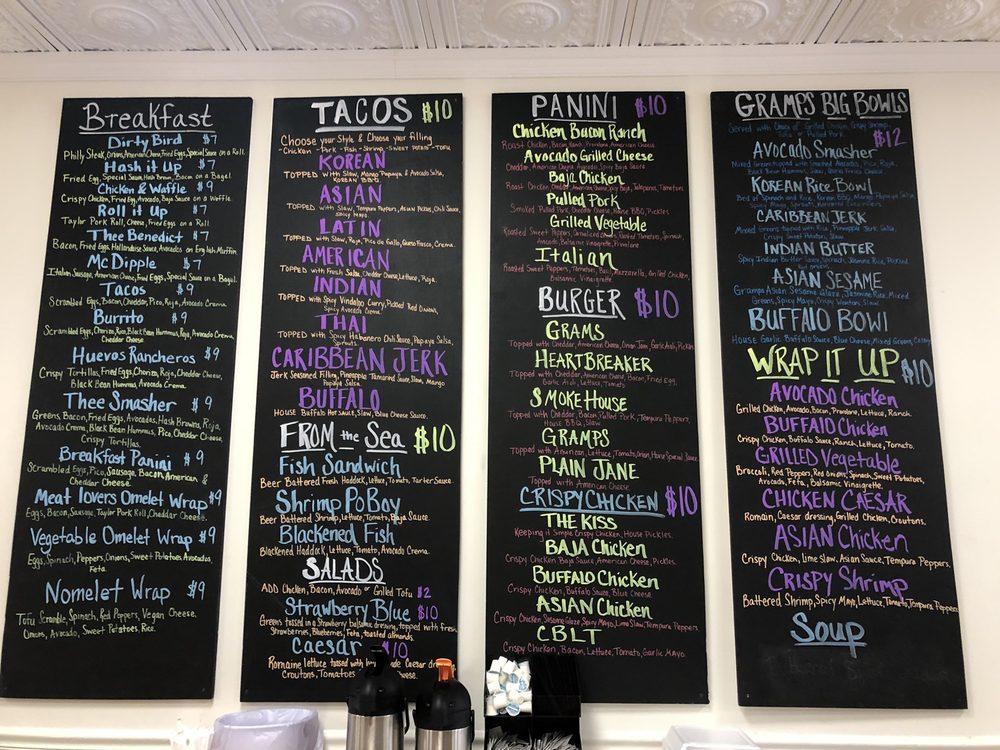 Breakfast
Dirty Bird $7
Philly Steak, Onions, American Cheese, Fried Eggs, Special Sauce on a Roll.
Hash it Up $7
Fried Egg, Special Sauce, Hash Brown, Bacon on a Bagel.
Chicken & Waffle $9
Crispy Chicken, Fried Egg, Avocado, Baja Sauce on a Waffle.
Roll it Up $7
Taylor Pork Roll, Cheese, Fried Eggs on a Roll.
Thee Benedict $7
Bacon, Fried Eggs, Hollandaise Sauce, Avocados on English Muffin.
Mc Dipple $7
Italian Sausage, American Cheese, Fried Eggs, Special Sauce on a Bagel.
Tacos $9
Scrambled Eggs, Bacon, Cheddar, Pico, Roja, Avocado Crema.
Burrito $9
Scrambled Eggs, Chorizo, Rice, Black Bean Hummus, Roja, Avocado Crema
Cheddar Cheese
Huevos Rancheros $9
Crispy Tortillas, Fried Eggs, Chorizo, Roja, Cheddar Cheese,
Black Bean Hummus, Avocado Crema.
Thee Smasher $9
Greens, Bacon, Fried Eggs, Avocados, Hash Browns, Roja,
Avocado Crema, Black Bean Hummus, Pico, Cheddar Cheese,
Crispy Tortillas.
Breakfast Panini $9
Scrambled Eggs, Pico, Sausage, Bacon, American &
Cheddar Cheese
Meat lovers Omelet Wrap $9
Eggs, Bacon, Sausage, Taylor Pork Roll, Cheddar Cheese.
Vegetable Omelet Wrap $9
Eggs, Spinach, Peppers, Onions, Sweet Potatoes Avocados,
Feta.
Nomelet Wrap $9
Tofu Scramble, Spinach, Red Peppers, Vegan Cheese.
Onions, Avocado, Sweet Potatoes, Rice.
TACOS $10
Choose your Style & Choose your filling
-Chicken - Pork - Fish - Shrimp - Sweet Potato - Tofu
KOREAN
TOPPED with Slaw, Mango Papaya & Avocado Salsa,
KOREAN BBQ
ASIAN
TOPPED with Slaw, Tempura Peppers, Asian Pickles, Chili Sauce,
Spicy Mayo
LATIN
TOPPED with Slaw, Roja, Pico de Gallo, Queso Fresco, Crema.
AMERICAN
TOPPED with Fresh Salsa, Cheddar Cheese, Lettuce, Roja.
INDIAN
TOPPED with Spicy Vindaloo Curry, Pickled Red Onions,
Spicy Avocado Crema
THAI
TOPPED with Spicy Habanero Chili Sauce, Papaya Salsa,
Sprouts.
CARIBBEAN JERK
Jerk Seasoned Filling, Pineapple Tamarind Sauce, Slaw, Mango
Papaya Salsa
BUFFALO
HOUSE Buffalo Hot Sauce, Slaw, Blue Cheese Sauce.
FROM the Sea $10
Fish Sandwich
Beer Battered Fresh Haddock, Lettuce, Tomato, Tarter Sauce.
Shrimp Po Boy
Beer Battered Shrimp, Lettuce, Tomato, Baja Sauce.
Blackened Fish
Blackened Haddock, Lettuce, Tomato, Avocado Crema.
SALADS
ADD Chicken, Bacon, Avocado or Grilled Tofu $2
Strawberry Blue $10
Greens tossed in a Strawberry balsamic dressing, topped with fresh
Strawberries, Blueberries, Feta, toasted almonds.
Caesar $10
Romaine lettuce tossed with Caesar
Croutons, Tomatoes cheese.
PANINI $10
Chicken Bacon Ranch
Roast Chicken, Bacon, Ranch, Provolone, American Cheese
Avocado Grilled Cheese
Cheddar, American Cheese, Avocado, Spicy Baja Sauce
Baja Chicken
Roast Chicken, Cheddar, American Cheese, Spicy Baja, Jalapenos, Tomatoes
Pulled Pork
Smoked Pulled Pork, Cheddar Cheese, House BBQ, Pickles
Grilled Vegetable
Roasted Sweet Peppers, Caramelized Onions, Roasted Tomatoes, Spinach,
Avocado, Balsamic Vinaigrette, Provolone
Italian
Roasted Sweet Peppers, Tomatoes, Basil, Mozzarella, Grilled Chicken,
Balsamic Vinaigrette.
BURGER $10
GRAMS
Topped with Cheddar, American Cheese, Onion Jam, Garlic Aioli, Pickles
HEARTBREAKER
Topped with Cheddar, American Cheese, Bacon, Fried Egg,
Garlic Aioli, Lettuce, Tomato
SMOKE HOUSE
Topped with Cheddar, Bacon, Pulled Pork, Tempura Peppers,
House BBQ, Slaw.
GRAMPS
Topped with American, Lettuce, Tomato, Onion, House Special Sauce
PLAIN JANE
Topped with American Cheese
CRISPY CHICKEN $10
THE KISS
Keeping it Simple Crispy Chicken, House Pickles.
BAJA Chicken
Crispy Chicken Baja Sauce, American Cheese, Pickles.
BUFFALO Chicken
Crispy Chicken, Buffalo Sauce, Blue Cheese
ASIAN Chicken
Crispy Chicken, Sesame Glaze, Spicy Mayo, Lime Slaw, Tempura Peppers
CBLT
Crispy Chicken, Bacon, Lettuce, Tomato, Garlic Mayo.
GRAMPS BIG BOWLS
Served with Choice of Grilled Chicken, Crispy Shrimp,
Tofu or Pulled Pork $12
AVOCADO Smasher
Mixed Greens tossed with Smashed Avocado, Pico, Roja,
Black Bean Hummus, Slaw, Queso Fresco Cheese
KOREAN Rice BOWL
Bed of Spinach and Rice, Korean BBQ, Mango Papaya Salsa
CARIBBEAN JERK
Mixed Greens topped with Rice, Pineapple Jerk Salsa,
Crispy Sweet Potatoes, Slaw.
INDIAN BUTTER
Spicy Indian Butter Sauce, Spinach, Jasmine Rice, Pickled
ASIAN SESAME
Gramps Asian Sesame Glaze, Jasmine Rice, Mixed
Greens, Spicy Mayo, Crispy Wonton, Slaw.
BUFFALO BOWL
House Garlic Buffalo Sauce, Blue Cheese, Mixed Greens,
WRAP IT UP $10
AVOCADO Chicken
Grilled Chicken, Avocado, Bacon, Provolone, Lettuce, Ranch.
BUFFALO Chicken
Crispy Chicken, Buffalo Sauce, Ranch, Lettuce, Tomato.
GRILLED Vegetable
Broccoli, Red Peppers, Red Onions, Spinach, Sweet Potatoes,
Avocado, Feta, Balsamic Vinaigrette.
CHICKEN CAESAR
Romain, Caesar dressing, Grilled Chicken, Croutons.
ASIAN Chicken
Crispy Chicken, Lime Slaw, Asian Sauce, Tempura Peppers.
CRISPY Shrimp
Battered Shrimp, Spicy Mayo, Lettuce, Tomato, Tempura Peppers
Soup